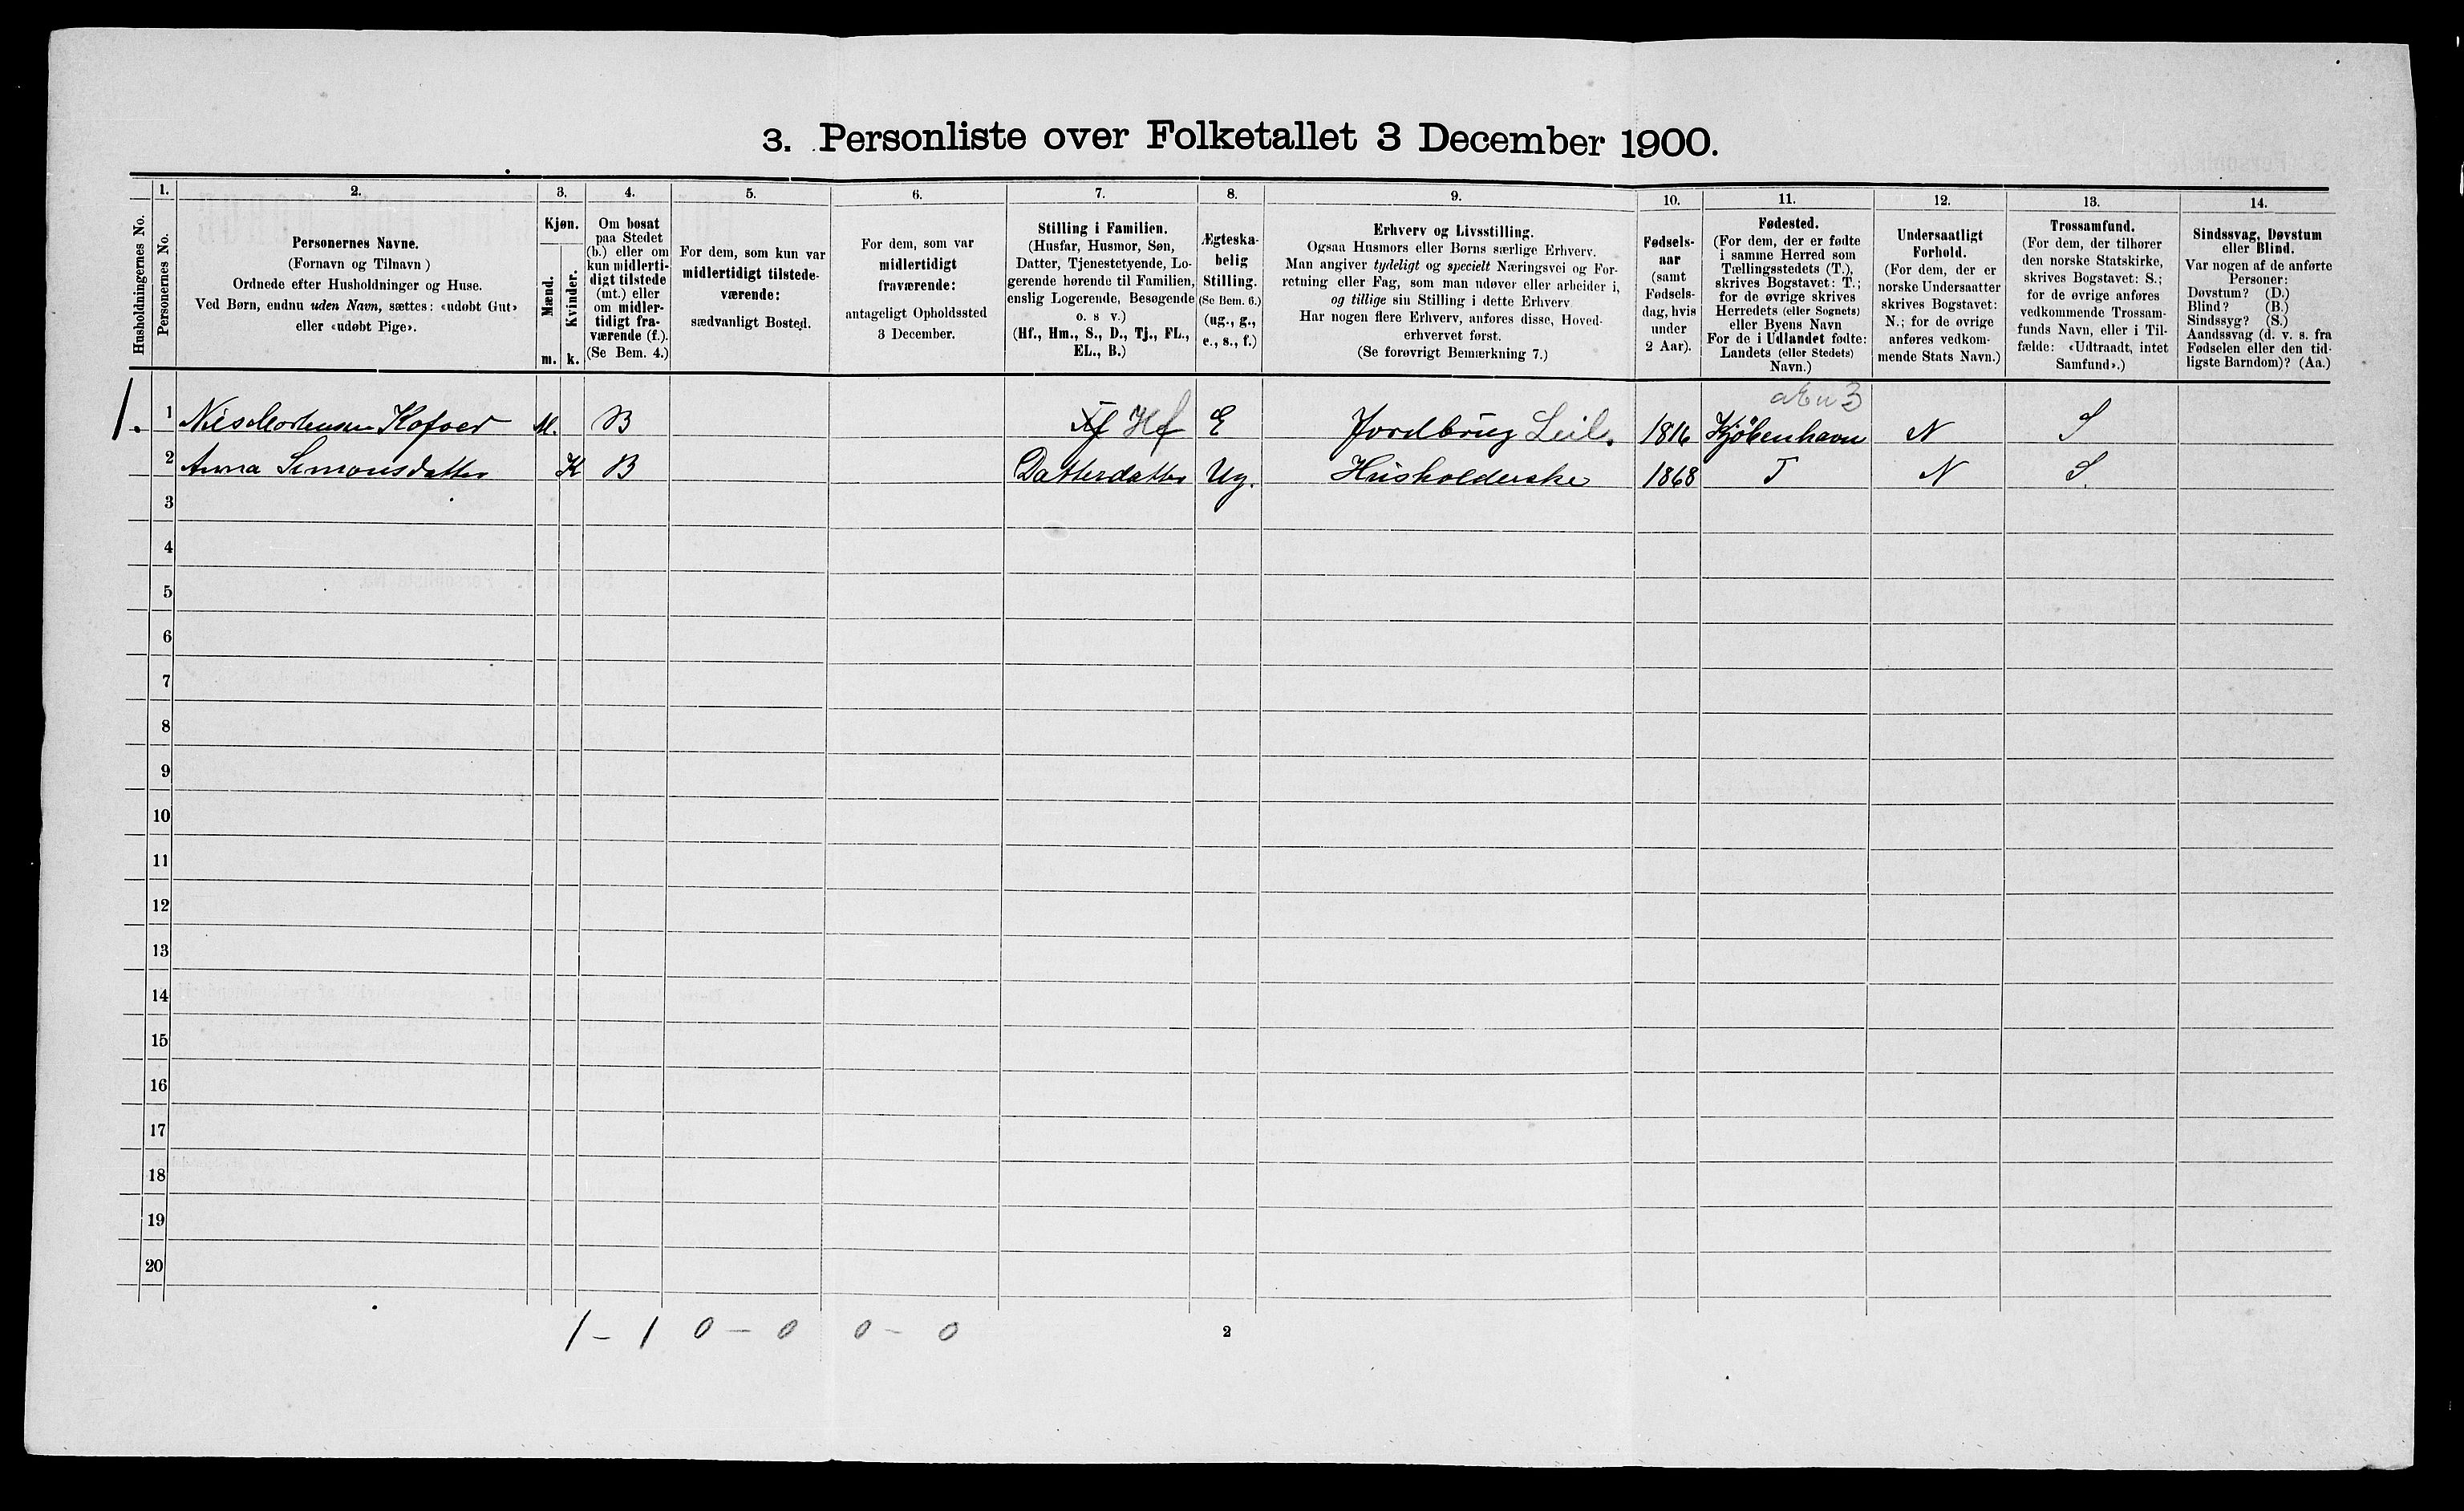 3. Personliste over Folketallet 3 December 1900.
1. 2. 3. 4. 5. 6. 7. 8. 9. 10. 11. 12. 13. 14.
Husholdningernes No.
Personernes No.
Personernes Navne.
(Fornavn og Tilnavn )
Ordnede efter Husholdninger og Huse.
Ved Børn, endnu uden Navn, sættes: «udøbt Gut»
eller «udøbt Pige».
Kjøn.
Mænd.
Kvinder.
m. k.
Om bosat
paa Stedet
(b.) eller om
kun midlerti-
digt tilstede
(mt.) eller
om midler-
tidigt fra-
værende (f.).
(Se Bem. 4.)
For dem, som kun var
midlertidigt tilstede-
værende:
sædvanligt Bosted.
For dem, som var
midlertidigt
fraværende:
antageligt Opholdssted
3 December.
Stilling i Familien.
(Husfar, Husmor, Søn,
Datter, Tjenestetyende, Lo-
gerende hørende til Familien,
enslig Logerende, Besøgende
o. s v.)
(Hf., Hm., S., D., Tj., FL.,
EL., B.)
Ægteska-
belig
Stilling.
(Se Bem. 6.)
(ug., g.,
e., s., f.)
Erhverv og Livsstilling.
Ogsaa Husmors eller Børns særlige Erhverv.
Man angiver tydeligt og specielt Næringsvei og For-
retning eller Fag, som man udøver eller arbeider i,
og tillige sin Stilling i dette Erhverv
Har nogen flere Erhverv, anføres disse, Hoved-
erhvervet først.
(Se forøvrigt Bemærkning 7.)
Fødsels-
aar
(samt
Fødsels-
dag, hvis
under
2 Aar).
Fødested.
(For dem, der er fødte
i samme Herred som
Tællingsstedets (T.),
skrives Bogstavet: T.;
for de øvrige skrives
Herredets (eller Sognets)
eller Byens Navn
For de i Udlandet fødte:
Landets (eller Stedets)
Navn.)
Undersaatligt
Forhold.
(For dem, der er
norske Undersaatter
skrives Bogstavet:
N.; for de øvrige
anføres vedkom-
mende Stats Navn.)
Trossamfund.
(For dem, der tilhører
den norske Statskirke,
skrives Bogstavet: S.;
for de øvrige anføres
vedkommende Trossam-
funds Navn, eller i Til-
fælde: «Udtraadt, intet
Samfund».)
Sindssvag, Døvstum
eller Blind.
Var nogen af de anførte
Personer:
Døvstum? (D.)
Blind? (B.)
Sindssyg? (S.)
Aandssvag (d. v. s. fra
Fødselen eller den tid-
ligste Barndom)? (Aa.)
1. 1 Niels Mortensen Kofoed M. B Hf E Jordbrug Leil. 1816 Kjöbenhavn N S
2 Anna Simonsdatter K B Datterdatter Ug. Husholderske 1868 T N S
3
4
5
6
7
8
9
10
11
12
13
14
15
16
17
18
19
20
1 - 1 0 - 0 0 - 0 2